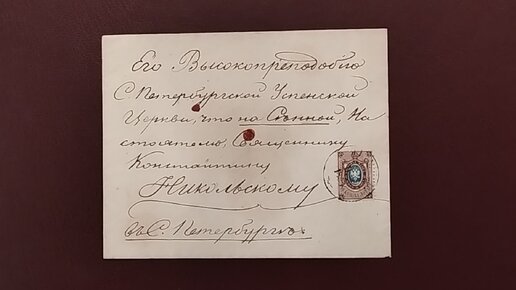 Его Высокопреподобію
С Петербургской Успенской
Церкви, что на Сѣнной, На
стоятелю, Священнику
Константину
Никольскому
въ С. Петербургѣ.